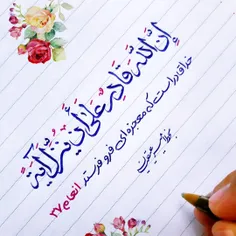 إنَّ اللَّهَ قَادِرٌ عَلَىٰ أَن يُنَزِّلَ آيَةً
خدا قادر است که معجزه‌ای فرو فرستد انعام ۳۷